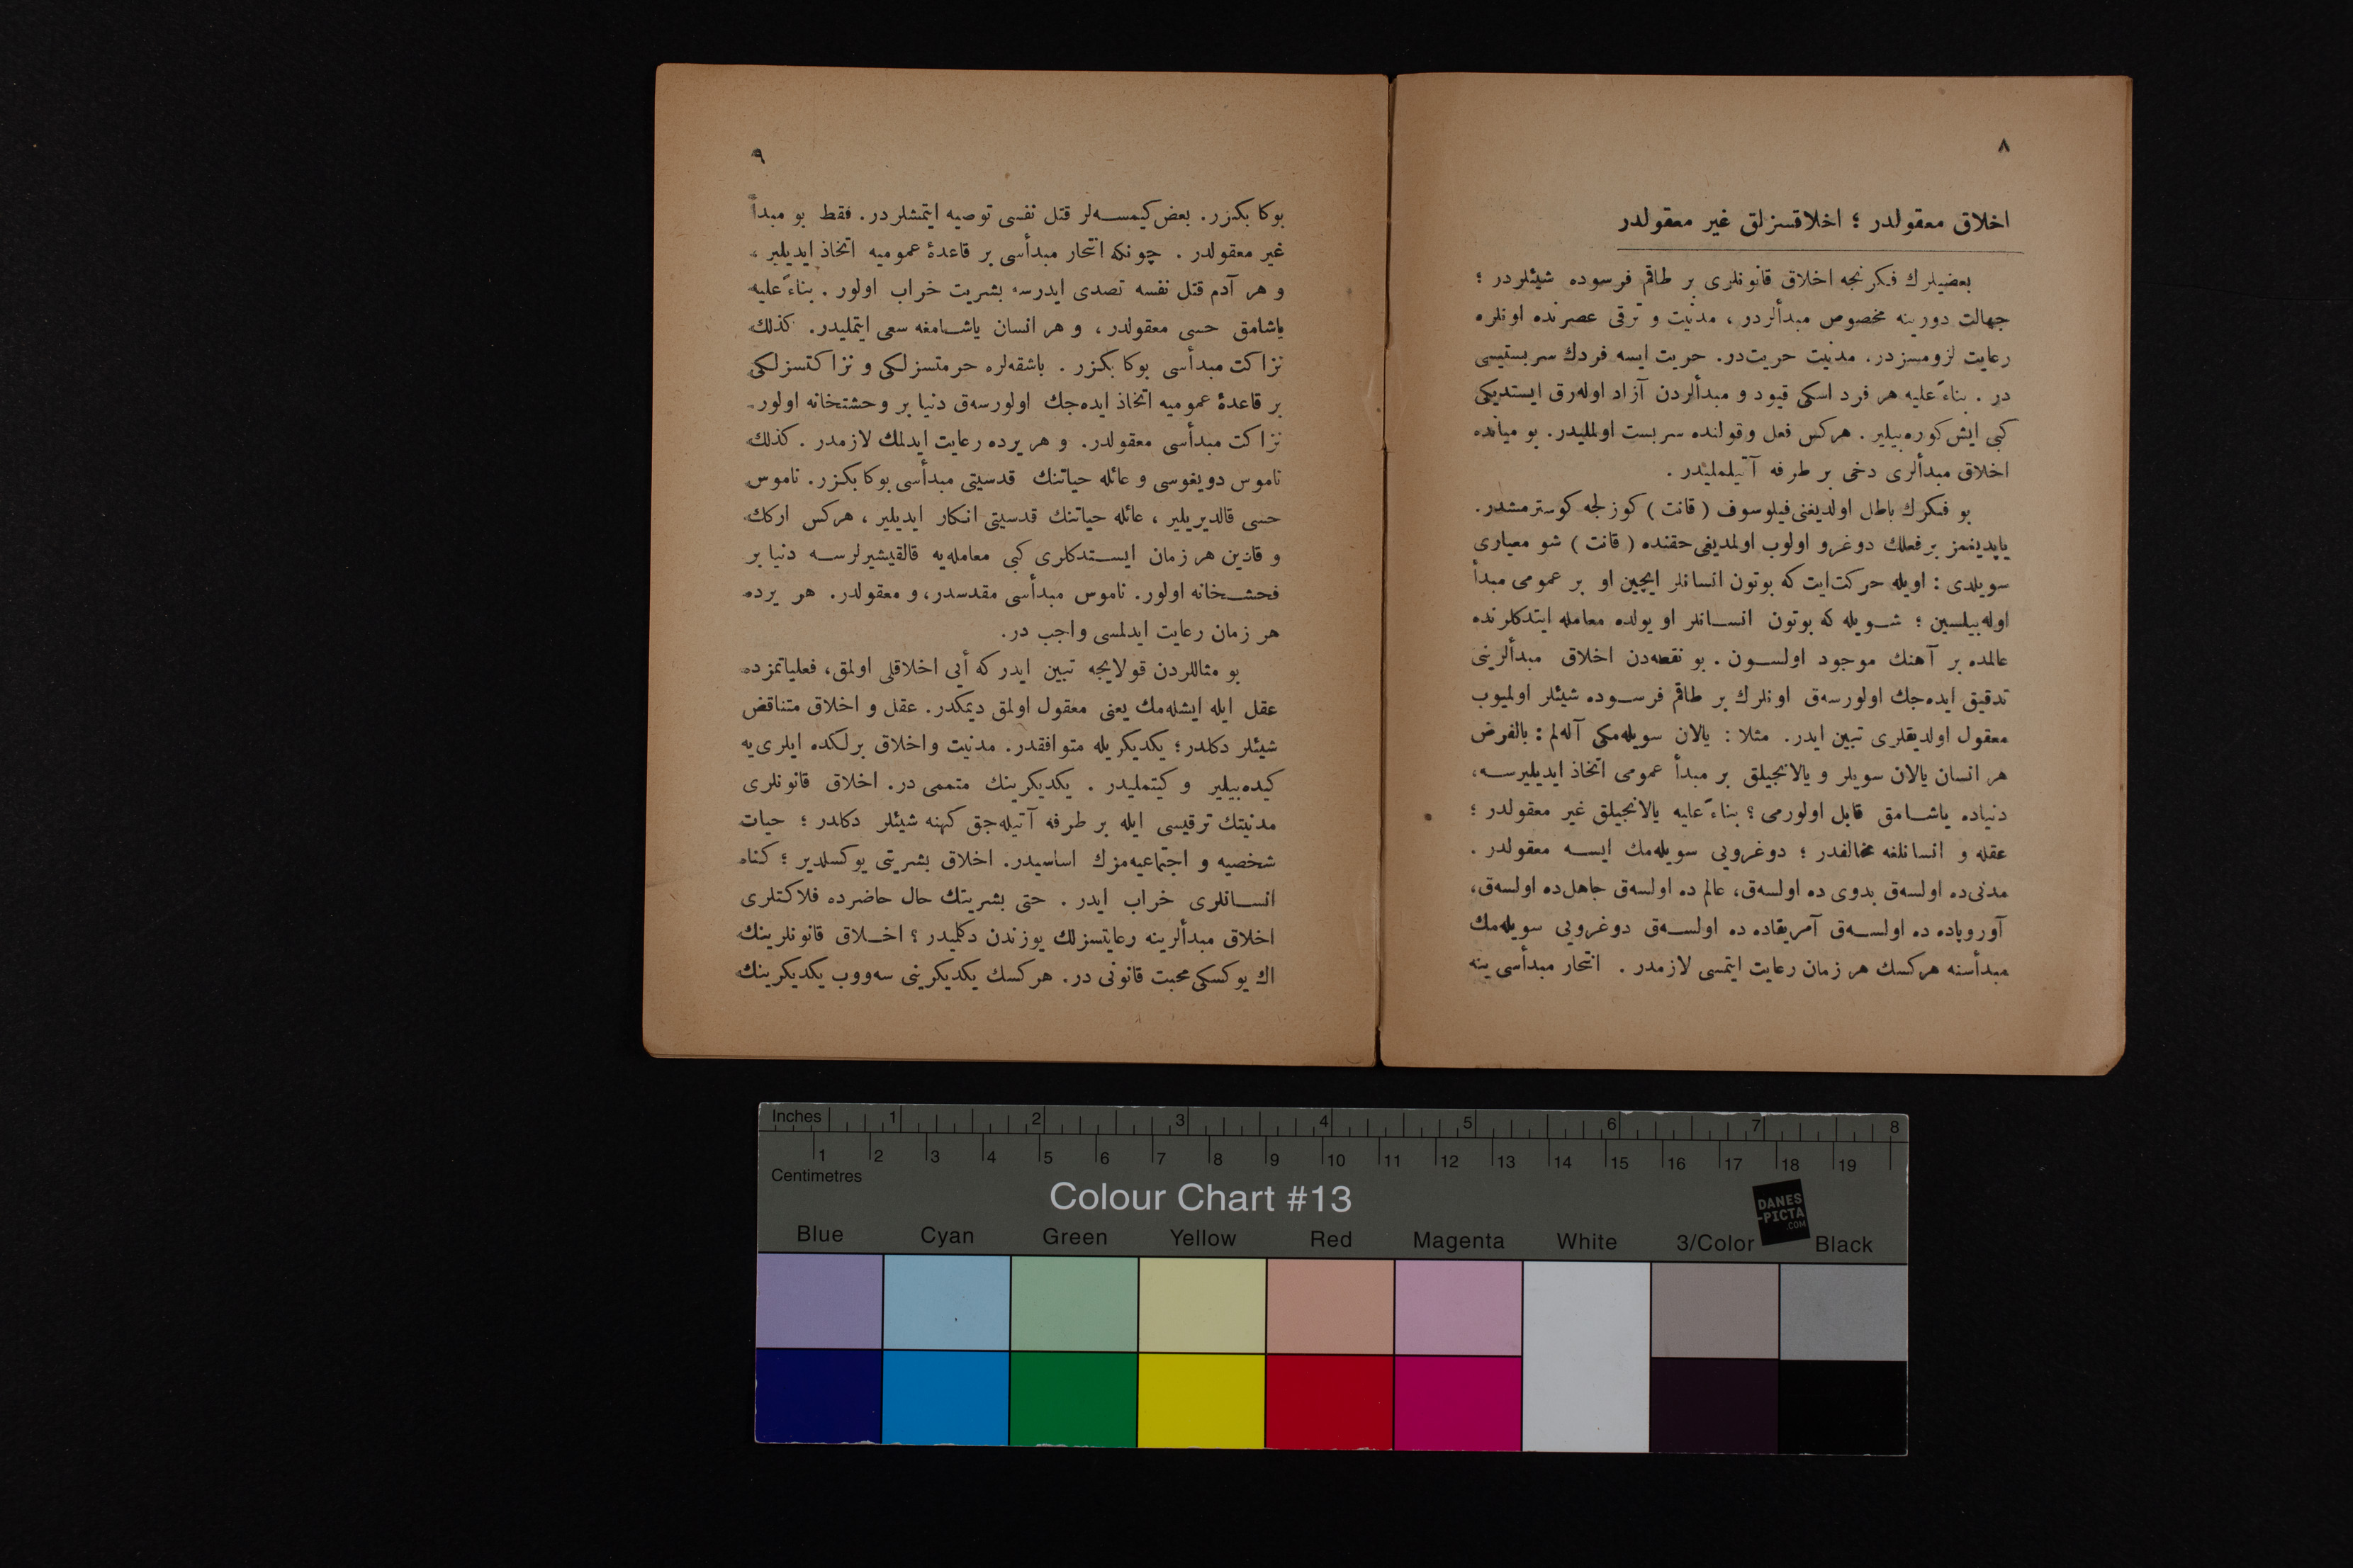 ٨
اخلاق معقولدر ؛ اخلاقسزلق غير معقولدر
بعضيلرك فكرنجه اخلاق قانونلرى بر طاقم فرسوده شيئلردر ؛
جهالت دورينه مخصوص مبدألردر ، مدنيت و ترقى عصرنده اونلره
رعايت لزومسزدر. مدنيت حريت‌در. حريت ايسه فردك سربستيسى
در . بناءً عليه هر فرد اسكى قيود و مبدألردن آزاد اوله‌رق ايستديكى
كبى ايش كوره‌بيلير . هركس فعل وقولنده سربست اولمليدر. بو ميانده
اخلاق مبدألرى دخى بر طرفه آتيلمليدر .
بو فكرك باطل اولديغنى فيلوسوف ( قانت ) كوزلجه كوسترمشدر.
ياپديغمز برفعلك دوغرو اولوب اولمديغى حقنده ( قانت ) شو معيارى
سويلدى : اويله حركت‌ايت كه بوتون انسانلر ايچين او بر عمومى مبدأ
اوله‌بيلسين ؛ شويله كه بوتون انسانلر او يولده معامله ايتدكلرنده
عالمده بر آهنك موجود اولسون . بو نقطه‌دن اخلاق مبدألرينى
تدقيق ايده‌جك اولورسه‌ق اونلرك بر طاقم فرسوده شيئلر اولميوب
معقول اولديقلرى تبين ايدر. مثلا : يالان سويله‌مكى آله‌لم : بالفرض
هر انسان يالان سويلر و يالانجيلق بر مبدأ عمومى اتخاذ ايديليرسه،
دنياده ياشامق قابل اولورمى ؟ بناءً عليه يالانجيلق غير معقولدر ؛
عقله و انسانلغه مخالفدر ؛ دوغرويى سويله‌مك ايسه معقولدر .
مدنى‌ده اولسه‌ق بدوى ده اولسه‌ق، عالم ده اولسه‌ق جاهل‌ده اولسه‌ق،
آوروپاده ده اولسه‌ق آمريقاده ده اولسه‌ق دوغرويى سويله‌مك
مبدأسنه هركسك هر زمان رعايت ايتمسى لازمدر . انتحار مبدأسى ينه
٩
بوكا بكزر. بعض كيمسه‌لر قتل نفسى توصيه ايتمشلردر. فقط بو مبدأ
غير معقولدر . چونكه انتحار مبدأسى بر قاعدهٔ عموميه اتخاذ ايديلير ،
و هر آدم قتل نفسه تصدى ايدرسه بشريت خراب اولور . بناءً عليه
ياشامق حسى معقولدر، و هر انسان ياشامغه سعى ايتمليدر. كذلك
نزاكت مبدأسى بوكا بكزر . باشقه‌لره حرمتسزلكى و نزاكتسزلكى
بر قاعدهٔ عموميه اتخاذ ايده‌جك اولورسه‌ق دنيا بر وحشتخانه اولور.
نزاكت مبدأسى معقولدر. و هر يرده رعايت ايدلمك لازمدر . كذلك
ناموس دويغوسى و عائله حياتنك قدسيتى مبدأسى بوكا بكزر. ناموس
حسى قالديريلير ، عائله حياتنك قدسيتى انكار ايديلير ، هركس اركك
و قادين هر زمان ايستدكلرى كبى معامله‌يه قالقيشيرلرسه دنيا بر
فحشخانه اولور. ناموس مبدأسى مقدسدر، و معقولدر. هر يرده
هر زمان رعايت ايدلمسى واجب در.
بو مثاللردن قولايجه تبين ايدر كه أيى اخلاقلى اولمق، فعلياتمزده
عقل ايله ايشله‌مك يعنى معقول اولمق ديمكدر. عقل و اخلاق متناقض
شيئلر دكلدر؛ يكديكريله متوافقدر. مدنيت واخلاق برلكده ايلرى‌يه
كيده‌بيلير و كيتمليدر . يكديكرينك متممى در. اخلاق قانونلرى
مدنيتك ترقيسى ايله بر طرفه آتيله‌جق كهنه شيئلر دكلدر ؛ حيات
شخصيه و اجتماعيه‌مزك اساسيدر. اخلاق بشريتى يوكسلدير ؛ كناه
انسانلرى خراب ايدر . حتى بشريتك حال حاضرده فلاكتلرى
اخلاق مبدألرينه رعايتسزلك يوزندن دكلميدر ؟ اخلاق قانونلرينك
اك يوكسكى محبت قانونى در. هركسك يكديكرينى سه‌ووب يكديكرينك
Inches 1 2 3 4 5 6 7 8
1 2 3 4 5 6 7 8 9 10 11 12 13 14 15 16 17 18 19
Centimetres
Colour Chart #13
DANES
-PICTA
.COM
Blue Cyan Green Yellow Red Magenta White 3/Color Black